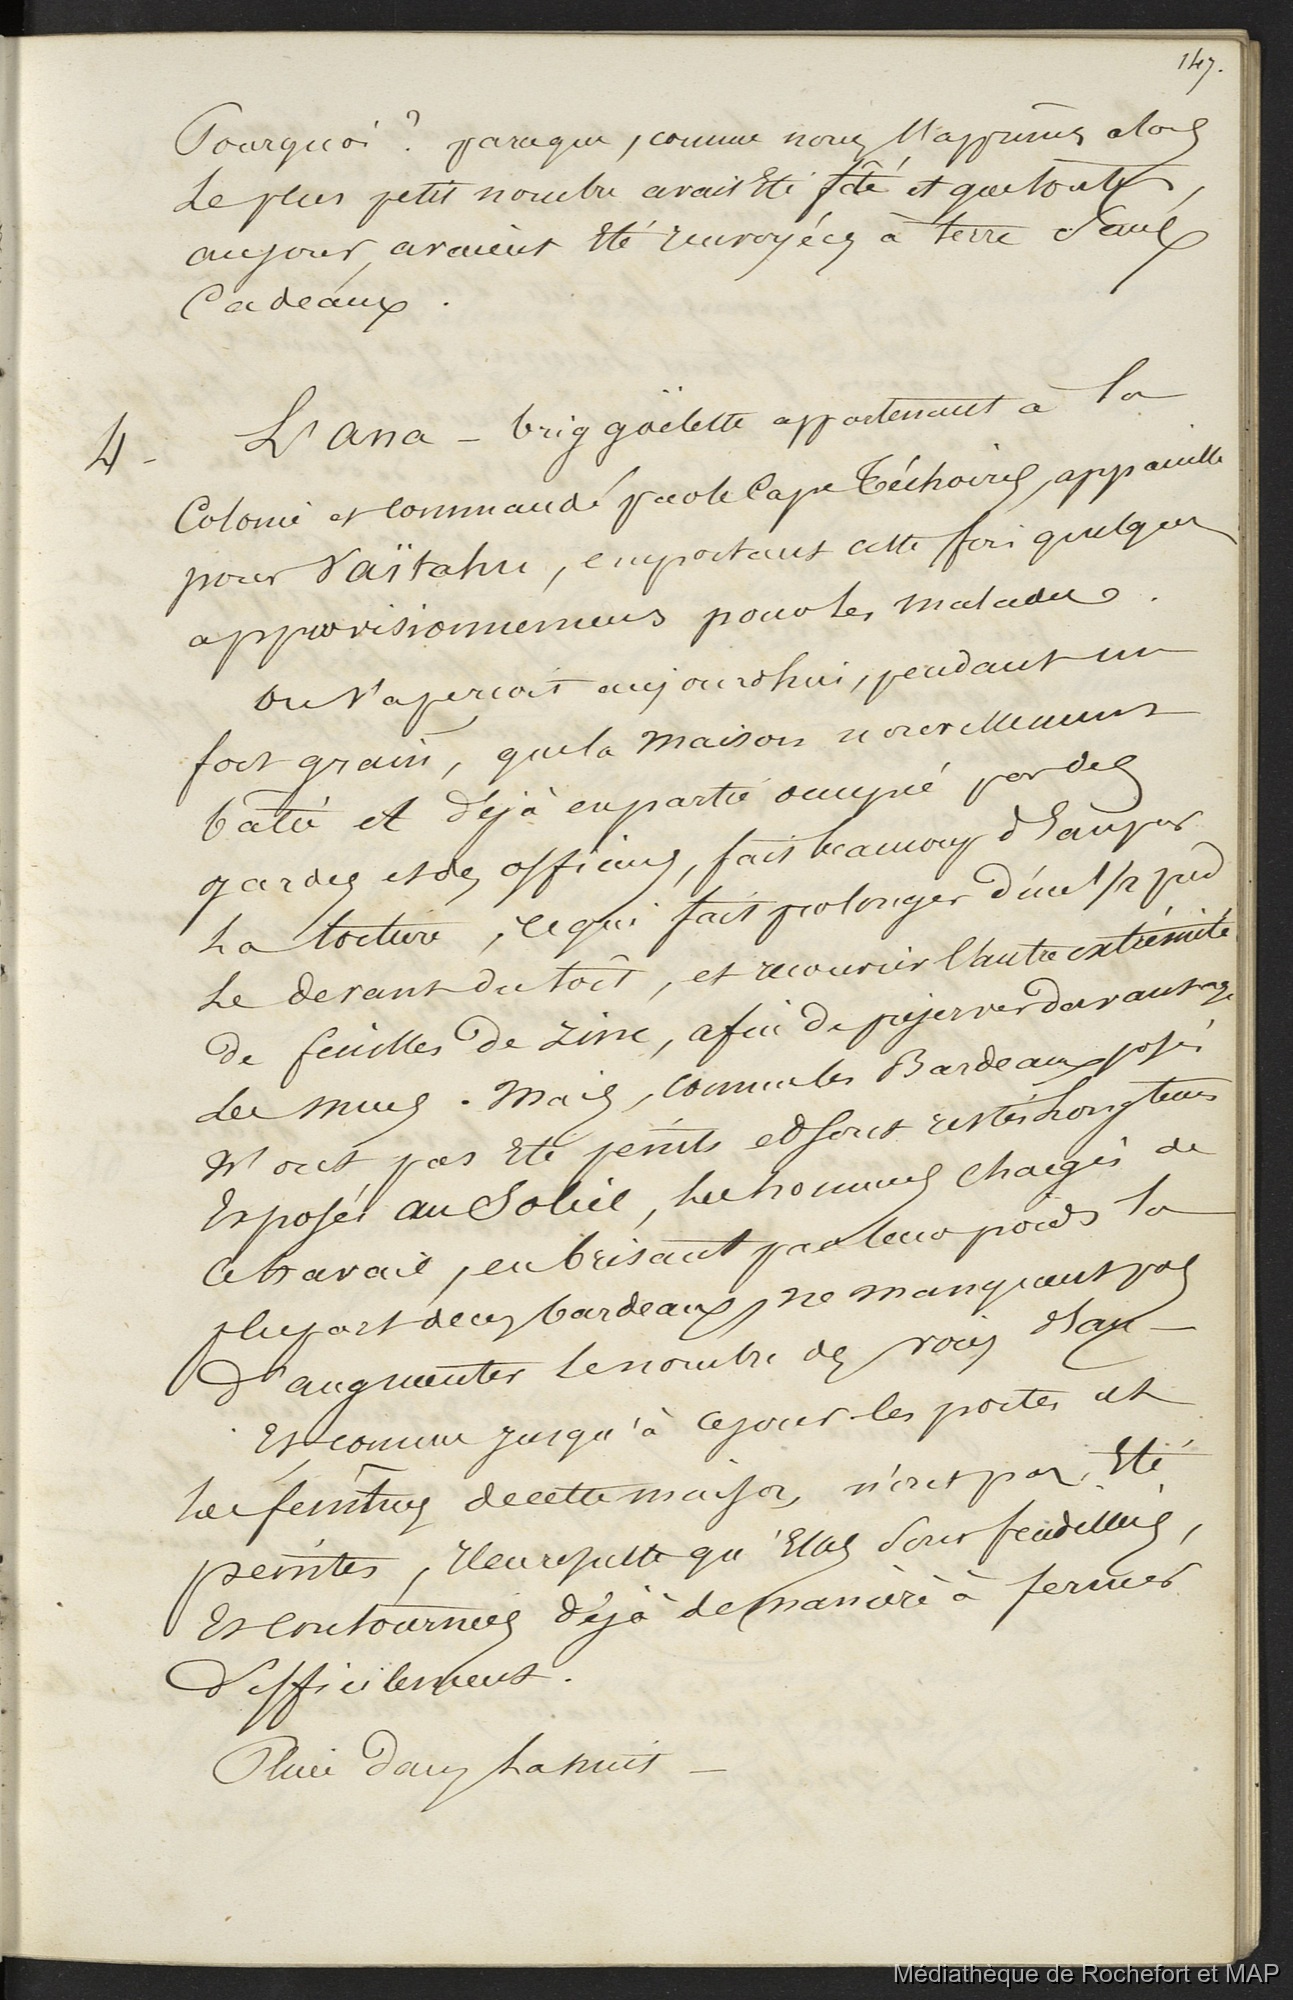 147.
Pourquoi ? parceque, comme nous l'apprimes alors
le plus petit nombre avait été fêté et que toutes,
au jour, avaient été renvoyées à terre sans
Cadeaux.
4 - L'Ana - brig goëlette appartenant à la
Colonie et commandé par le Cape Téchoires, appareille
pour Vaïtahu, emportant cette fois quelques
approvisionnemens pour les malades.
On s'aperçoit aujourdhui, pendant un
fort grain, que la maison nouvellement
bâtie et déjà en partie occupée par des
gardes et des officiers, fait beaucoup d'eau par
la toiture, ce qui fait prolonger d'un 1/2 pied
le devant du toit, et recouvrir l'autre extrémité
de feuilles de zinc, afin de préserver davantage
les murs. Mais, comme les Bardeaux posés
n'ont pas été peints et sont restés longtems
exposés au Soleil, les hommes chargés de
ce travail, en brisant par leur poids la
plupart de ces bardeaux, ne manquent pas
d'augmenter le nombre des voies d'eau -
Et comme jusqu'à ce jour les portes et
les fenêtres de cette maison, n'ont pas été
peintes, il en resulte qu'elles sont fendillées,
et contournées déjà de manière à fermer
difficilement.
Pluie dans la nuit -
Médiathèque de Rochefort et MAP